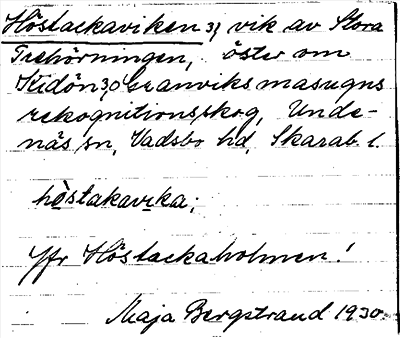 Höstackaviken 3, vik av Stora
Trehörningen, öster om
Kidön 3,0 Granviks masugns
rekognitionsskog, Unde-
näs sn, Vadsbo hd, Skarab. l.
höstakavika;
Jfr Höstackaholmen!
Maja Bergstrand 1930.